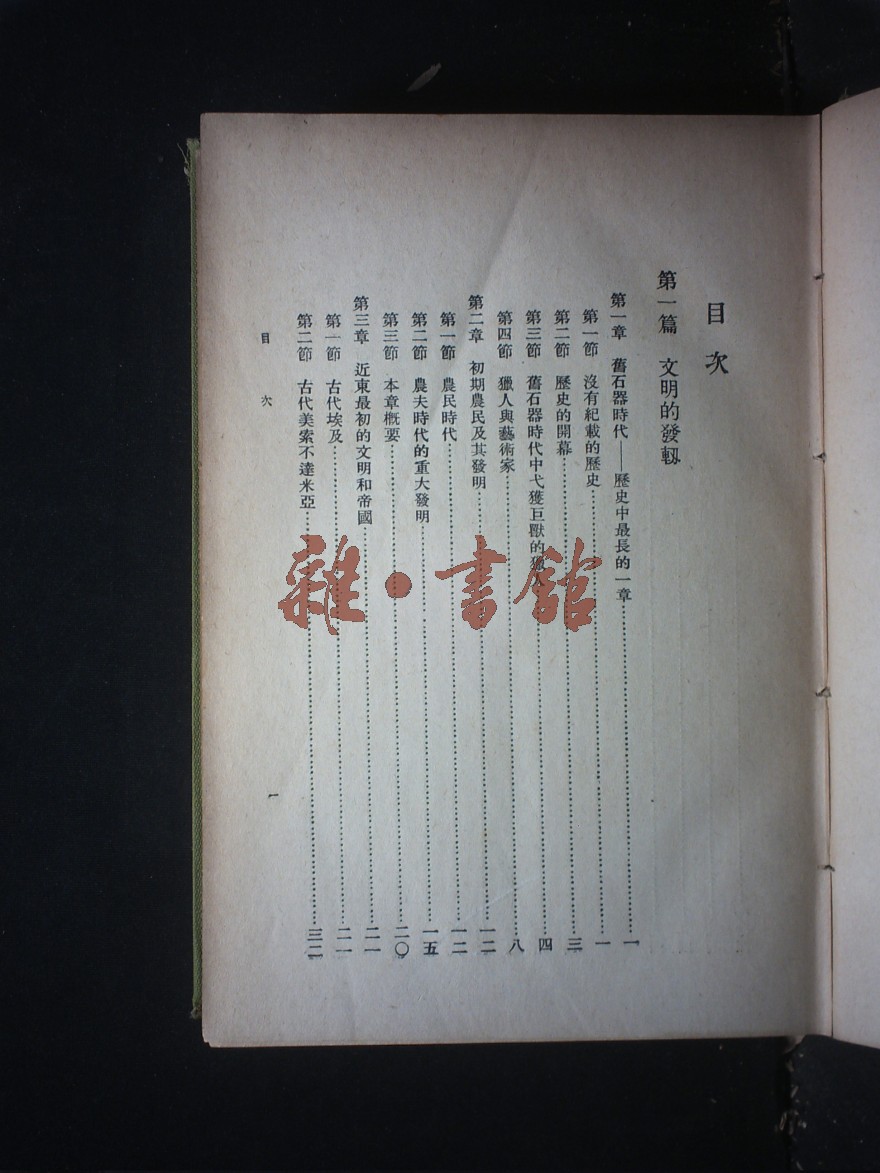 目次
第一篇 文明的發軔
第一章 舊石器時代——歷史中最長的一章……一
第一節 沒有紀載的歷史……一
第二節 歷史的開幕……三
第三節 舊石器時代中弋獲巨獸的獵人……四
第四節 獵人與藝術家……八
第二章 初期農民及其發明……一二
第一節 農民時代……一二
第二節 農夫時代的重大發明……一五
第三節 本章概要……二〇
第三章 近東最初的文明和帝國……二一
第一節 古代埃及……二一
第二節 古代美索不達米亞……三二
目次
一
雜·書館